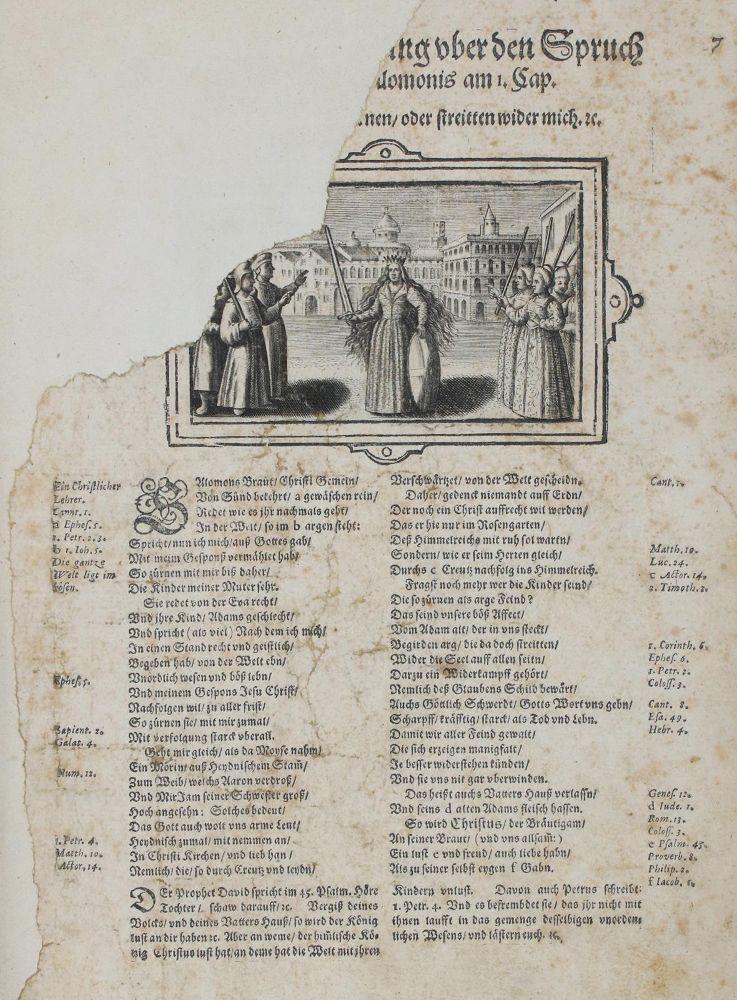 7
ung vber den Spruch
alomonis am 1. Cap.
nen/ oder streitten wider mich. ꝛc.
Ein Christlicher
Lehrer.
Cant. 1.
a Ephes. 5.
2. Petr. 2. 3.
b 1. Ioh. 5.
Die gantze
Welt lige im
bösen.
Ephes. 5.
Sapient. 2.
Galat. 4.
Num. 12.
1. Petr. 4.
Matth. 10.
Actor, 14.
SAlomons Braut/ Christi Gemein/
Von Sünd bekehrt/ a gewäschen rein/
Redet wie es jhr nachmals geht/
In der Welt/ so im b argen steht:
Spricht/ nun ich mich/ auß Gottes gab/
Mit meim Gesponß vermählet hab/
So zürnen mit mir biß daher/
Die Kinder meiner Muter sehr.
Sie redet von der Eva recht/
Vnd jhre Kind/ Adams geschlecht/
Vnd spricht (als viel) Nach dem ich mich/
In einen Stand recht vnd geistlich/
Begeben hab/ von der Welt ebn/
Vnordlich wesen vnd böß lebn/
Vnd meinem Gespons Jesu Christ/
Nachfolgen wil/ zu aller frist/
So zürnen sie/ mit mir zumal/
Mit verfolgung starck vberall.
Geht mir gleich/ als da Moyse nahm/
Ein Mörin/ auß Heydnischem Stam̃/
Zum Weib/ welchs Aaron verdroß/
Vnd MirJam seiner Schwester groß/
Hoch angesehn: Solches bedeut/
Das Gott auch wolt vns arme Leut/
Heydnisch zumal/ mit nemmen an/
In Christi Kirchen/ vnd lieb han/
Nemlich/ die/ so durch Creutz vnd leydn/
Verschwärtzet/ von der Welt gescheidn.
Daher/ gedenck niemandt auff Erdn/
Der noch ein Christ auffrecht wil werden/
Das er hie nur im Rosengarten/
Deß Himmelreichs mit ruh sol wartn/
Sondern/ wie er seim Herten gleich/
Durchs c Creutz nachfolg ins Himmelreich.
Fragst noch mehr wer die Kinder seind/
Die so zürnen als arge Feind?
Das seind vnsere böß Affect/
Vom Adam alt/ der in vns steckt/
Begirden arg/ die da doch streitten/
Wider die Seel auff allen seitn/
Darzu ein Widerkampff gehört/
Nemlich deß Glaubens Schild bewärt/
Auchs Göttlich Schwerdt/ Gotts Wort vns gebn/
Scharpff/ kräfftig/ starck/ als Tod vnd Lebn.
Damit wir aller Feind gewalt/
Die sich erzeigen manigfalt/
Je besser widerstehen künden/
Vnd sie vns nit gar vberwinden.
Das heißt auchs Vatters Hauß verlassn/
Vnd seins d alten Adams fleisch hassen.
So wird Christus/ der Bräutigam/
An seiner Braut/ (vnd vns allsam̃:)
Ein lust e vnd freud/ auch liebe habn/
Als zu seiner selbst eygen f Gabn.
Cant. 1.
Matth. 10.
Luc. 24.
c Actor. 14.
2. Timoth. 2.
2. Corinth. 6.
Ephes. 6.
1. Petr. 2.
Coloss. 3.
Cant. 8.
Esa. 49.
Hebr. 4.
Genes. 12.
d Iude. 1.
Rom. 13.
Coloss. 3.
e Psalm. 45.
Proverb. 8.
Philip. 2.
f Iacob. 1.
DEr Prophet David spricht im 45. Psalm. Höre
Tochter/ schaw darauff/ ꝛc. Vergiß deines
Volcks/ vnd deines Vatters Hauß/ so wird der König
lust an dir haben ꝛc. Aber an weme/ der him̃lische Kö-
nig Christus lust hat/ an deme hat die Welt mit jhren
Kindern vnlust. Davon auch Petrus schreibt:
1. Petr. 4. Vnd es befrembdet sie/ das jhr nicht mit
ihnen laufft in das gemenge desselbigen vnorden-
lichen Wesens/ vnd lästern euch. ꝛc.